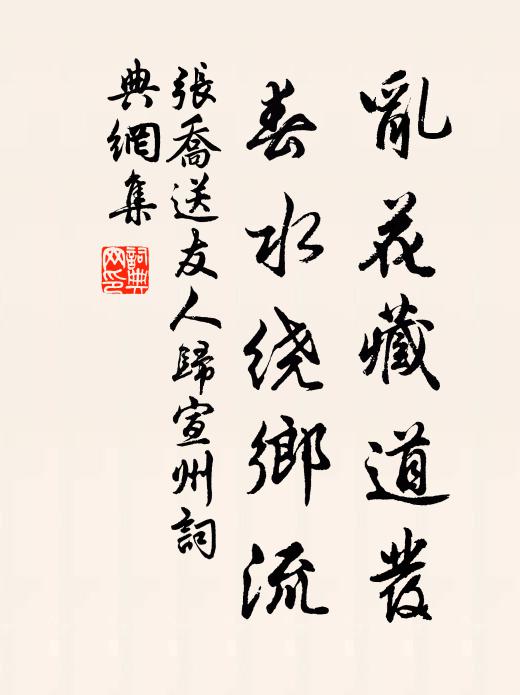 亂花藏道發
春水绕鄉流
張喬送友人歸宣州詞
典網集
詞典
网印